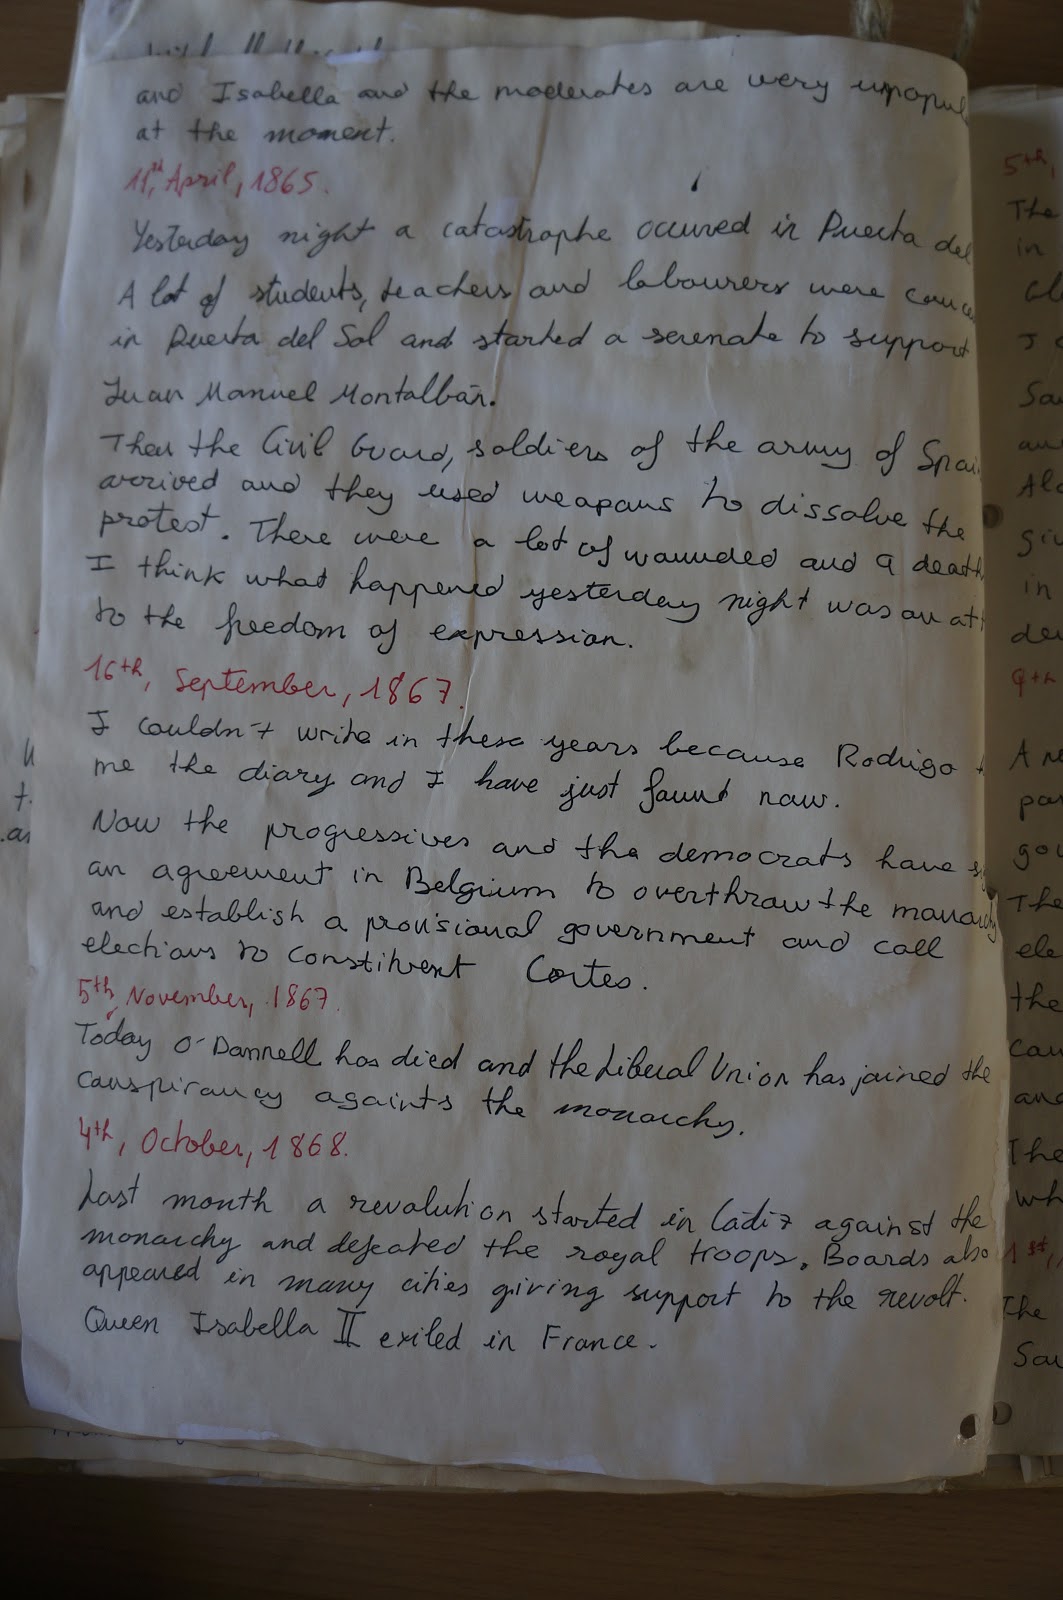 and Isabella and the moderates are wery unpopul
at the moment.
11th, April, 1865.
Yesterday night a catastrophe occured in Puerta del
A lot of students, teachers and labourers were conce
in Puerta del Sol and started a serenate to support
Juan Manuel Montalbán.
Then the Civil Guard, soldiers of the army of Spai
arrived and they used weapons to dissolve the
protest. There were a lot of wounded and 9 death
I think what happened yesterday night was an att
to the freedom of expression.
16th, September, 1867.
I couldn't write in these years because Rodrigo t
me the diary and I have just found now.
Now the progressives and the democrats have si
an agreement in Belgium to overthraw the monarchy
and establish a provisional government and call
elections to Constituent Cortes.
5th, November, 1867.
Today O'Donnell has died and the Liberal Union has joined the
conspirancy againts the monarchy.
4th, October, 1868.
Last month a revolution started in Cádiz against the
monarchy and defeated the royal troops. Boards also
appeared in many cities giving support to the revolt.
Queen Isabella II exiled in France.
5th,
The
in
I
Sa
Alc
giv
in
der
9th
A ne
par
gov
The
ele
the
can
and
The
wh
1st,
The
Sa